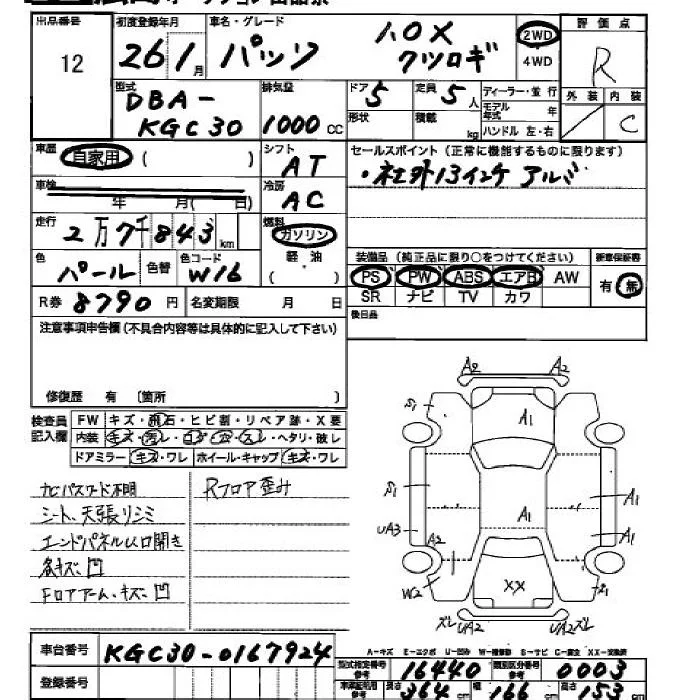 出品番号 初度登録年月 車名・グレード 評価点
12 26 1月 パッソ 1.0X クツロギ 2WD 4WD R
型式 排気量 ドア 定員 ディーラー・並行 外装 内装
DBA-KGC30 1000cc 5 5人 モデル年式 年 / C
形状 積載 kg ハンドル 左・右
車歴 自家用 ( ) シフト AT セールスポイント (正常に機能するものに限ります)
車検 年 月( 日) 冷房 AC ・社外13インチアルミ
走行 2万7千843km 燃料 ガソリン 軽油 ( )
装備品 (純正品に限り○をつけてください) 新車保証書
色 パール 色替 色コード W16 PS PW ABS エアB AW 有・無
R券 8790円 名変期限 月 日 SR ナビ TV カワ
注意事項申告欄 (不具合内容等は具体的に記入して下さい) 後日品
修復歴 有 〔箇所 〕
検査員記入欄 FW キズ・飛石・ヒビ割・リペア跡・X要
内装 キズ・汚レ・コゲ・穴・スレ・ヘタリ・破レ
ドアミラー キズ・ワレ ホイール・キャップ キズ・ワレ
ナビパスワード不明 Rフロア歪み
シート、天張リシミ
エンドパネル以口開き
各キズ、凹
Fロアアーム、キズ、凹
A2 A1
S1 A1
S1 A1
UA3 A2 A1 A1
W2 XX S1
ズレ UA2 UA2 ズレ
A-キズ E-エクボ U-凹み W-補修跡 S-サビ C-腐食 XX-交換済
車台番号 KGC30-0167924
型式指定番号 参考 16440 類別区分番号 参考 0003
登録番号 長さ 364cm 幅 166cm 高さ 153cm